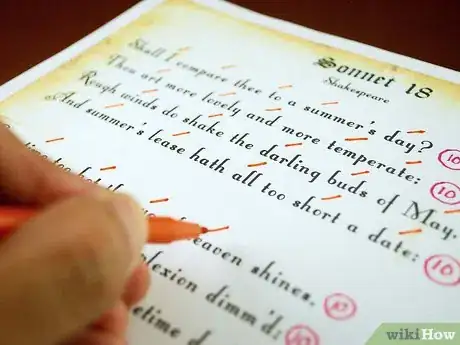 Sonnet 18
Shakespeare
Shall I compare thee to a summer's day?
Thou art more lovely and more temperate: 10
Rough winds do shake the darling buds of May, 10
And summer's lease hath all too short a date: 10
heaven shines, 10
plexion dimm'd; 10
metime d
wikiHow